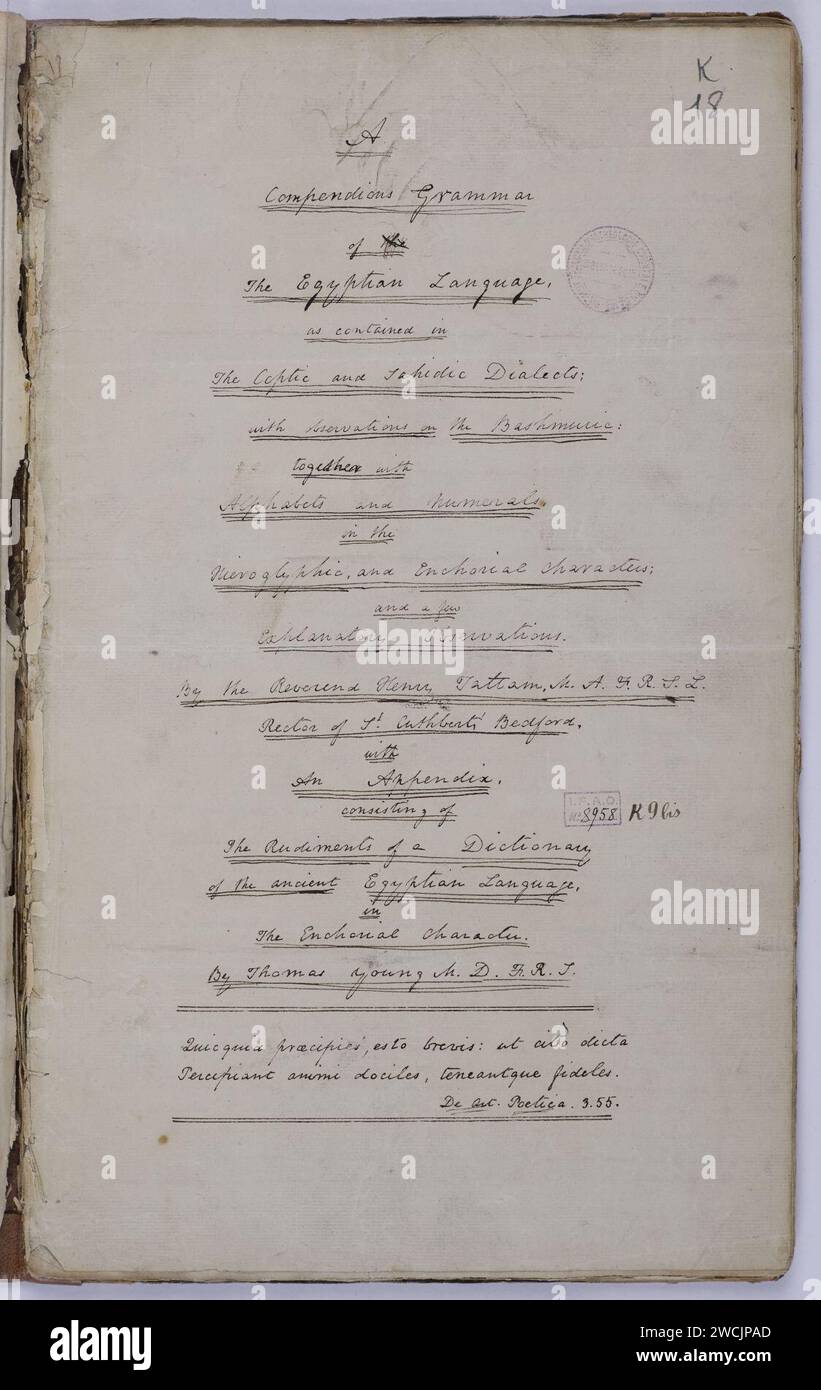 K
18
A
Compendious Grammar
of the
The Egyptian Language,
as contained in
The Coptic and Sahidic Dialects;
with observations on the Bashmuric:
together with
Alphabets and Numerals
in the
Hieroglyphic, and Enchorial characters;
and a few
Explanatory Observations.
By the Reverend Henry Tattam, M. A. F. R. S. L.
Rector of St. Cuthbert's Bedford,
with
An Appendix,
consisting of
The Rudiments of a Dictionary
of the ancient Egyptian Language,
in
The Enchorial character.
By Thomas Young M. D. F. R. S.
I.F.A.O.
No. 8958 K 9 bis
Quicquid præcipies, esto brevis: ut cito dicta
Percipiant animi dociles, teneantque fideles.
De Art. Poetica. 3.55.
alamy
Image ID: 2WCJPAD
www.alamy.com